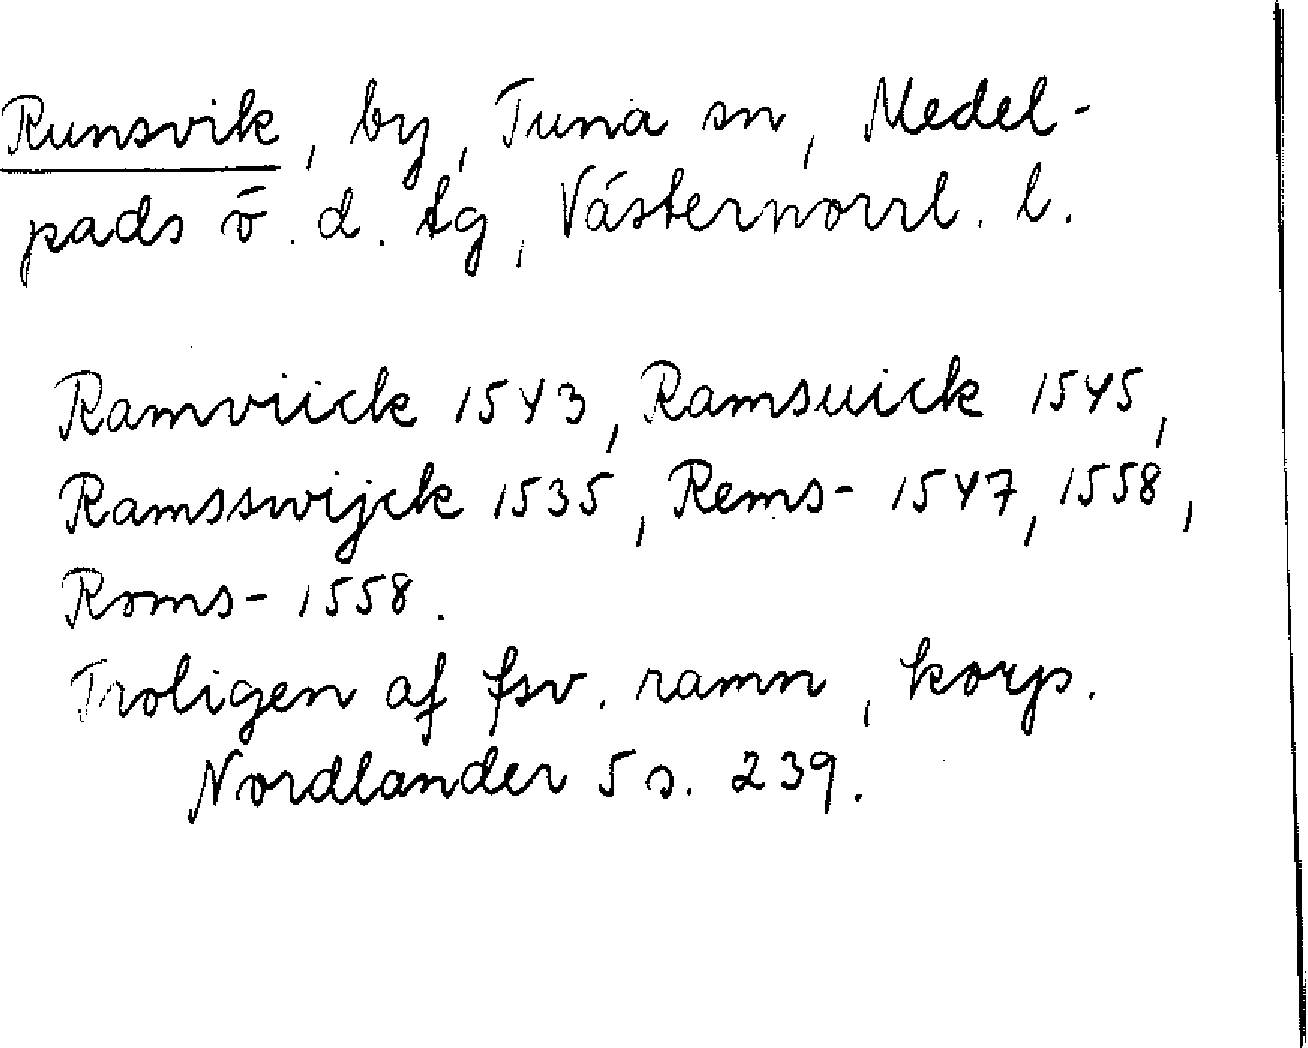 Runsvik, by, Tuna sn, Medel-
pads ö. d. tg, Västernorrl. l.
Ramviick 1543, Ramsuick 1545,
Ramsswijck 1535, Rems- 1547, 1558,
Roms- 1558.
Troligen af fsv. ramn, korp.
Nordlander 5 s. 239.